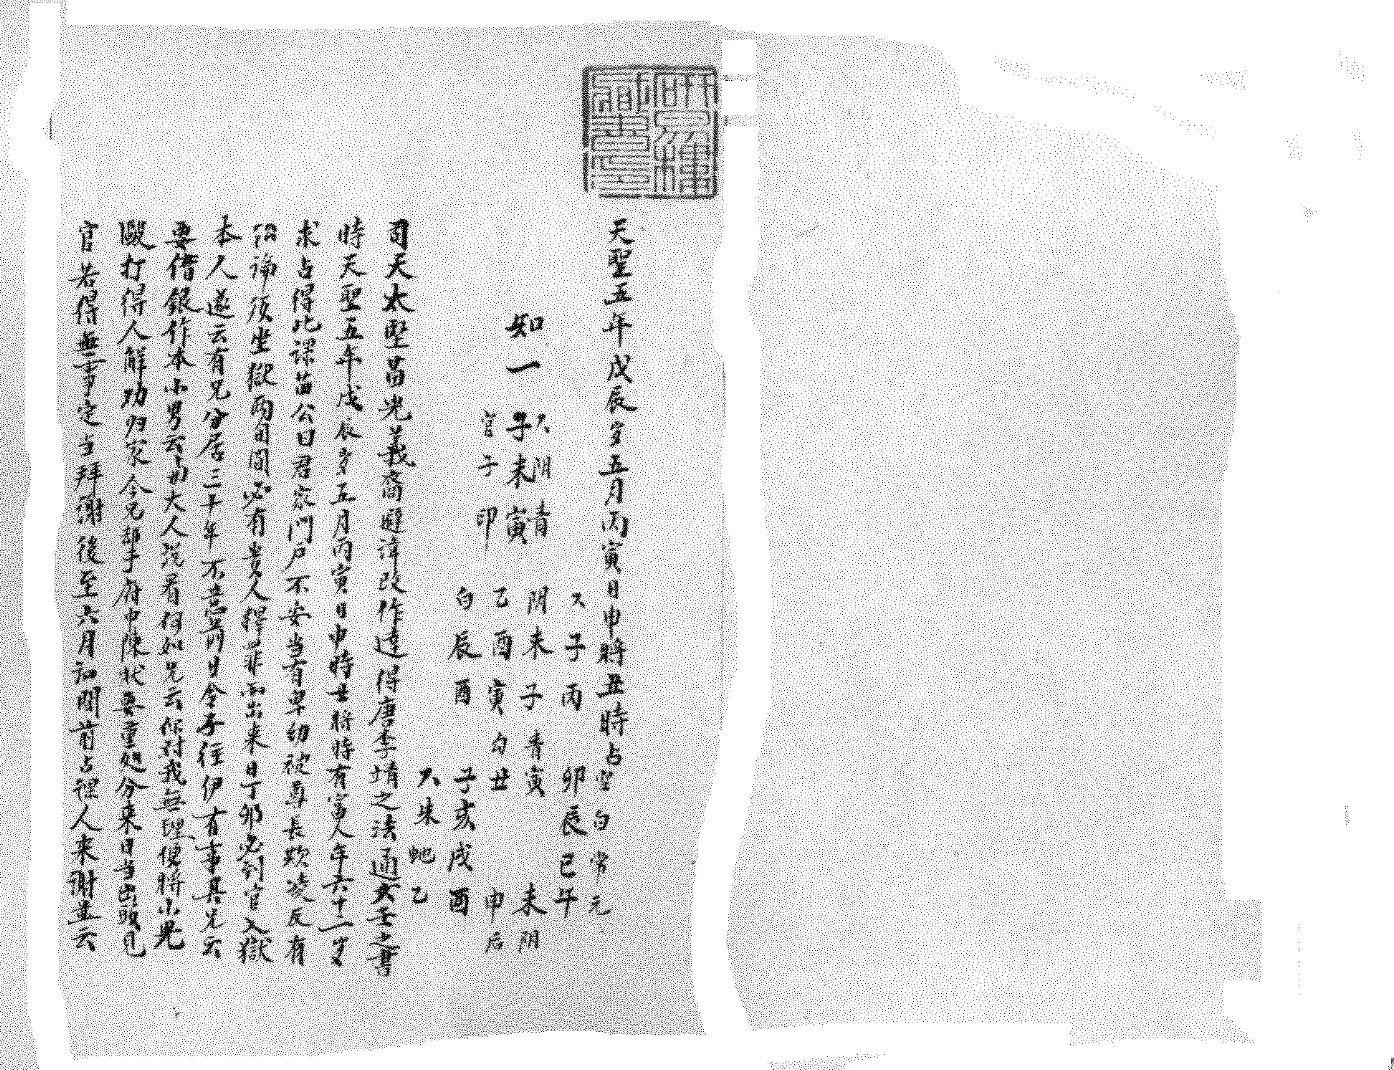 天聖五年戊辰岁五月丙寅日申將丑時占
空白常元
卯辰巳午
未阴
申后
子丙
阴未子青寅
乙酉寅勾丑
白辰酉
子亥戌酉
朱蛇乙
如一
阴青
子未寅
官子印
司天太
光義裔避諱改作達得唐李靖之法通玄壬之書
時天聖五年戊辰岁五月丙寅日申時丑將時有富人年六十二岁
求占得此課苗公曰君家門户不安当有卑幼被尊長欺凌反有
論須坐獄两旬間必有貴人釋罪而出来日丁卯必到官入獄
本人遂云有兄分居三十年不意前日令子往伊有事其兄云
要借銀作本小男云
大人説看何如兄云你对我無理便將小児
毆打得人解劝归家今兄却于府中陳状要重処分来日当出頭见
官若得無事定当拜謝後至六月初間前占課人来謝並云